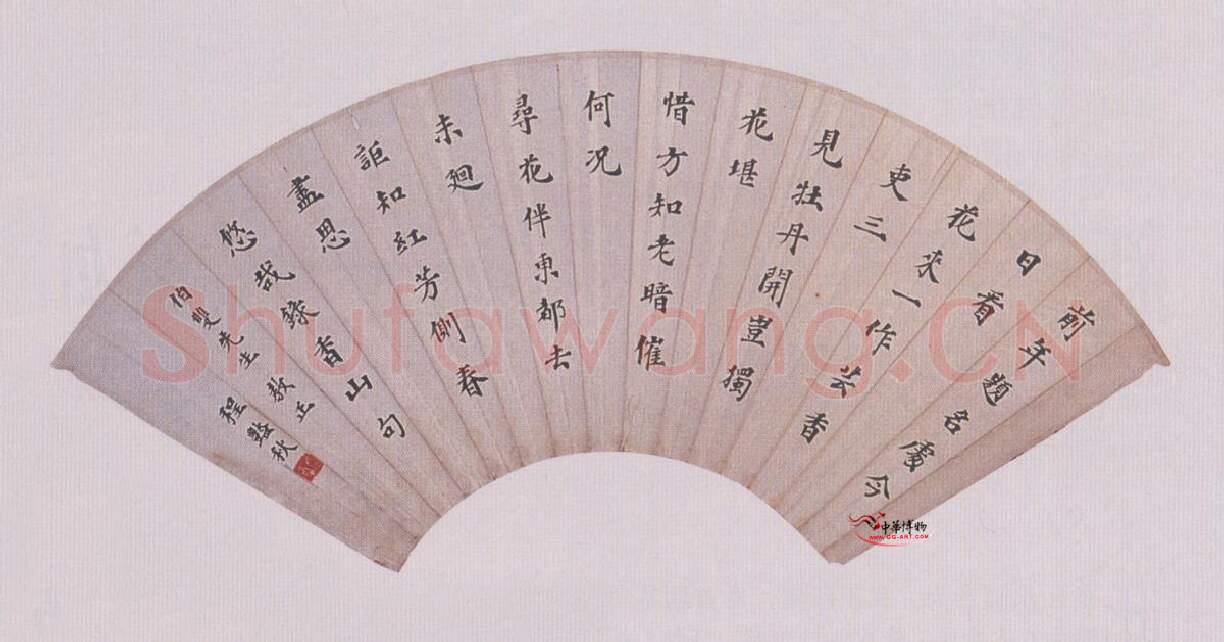 前年題名處今
日看
花來一作芸香
吏三
見牡丹開豈獨
花堪
惜方知老暗催
何况
尋花伴東都去
未迴
詎知紅芳側春
盡思
悠哉錄香山句
伯先生教正
程豔秋
Shufawang.CN
中華博物
WWW.GG-ART.COM